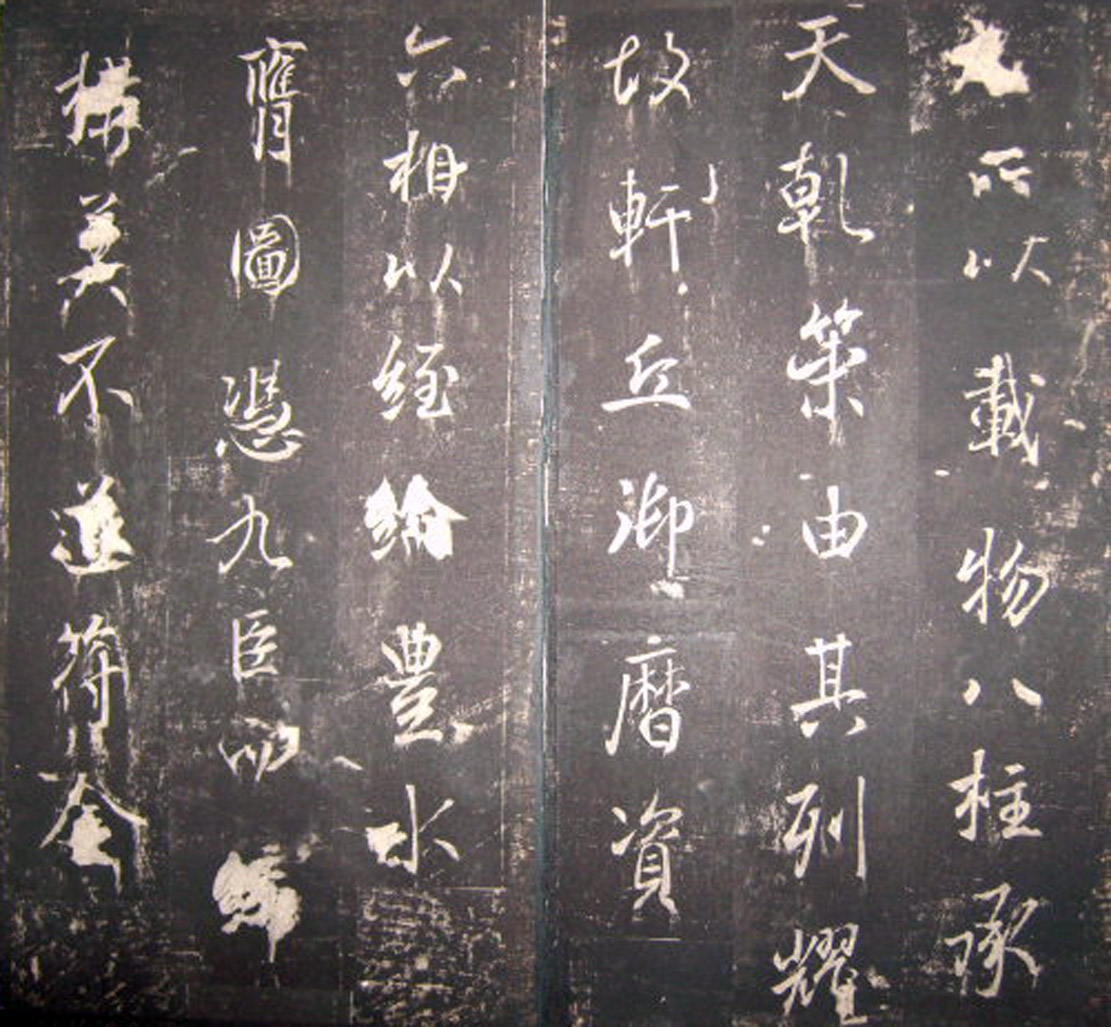 所以載物八柱承
天乾策由其列耀
故軒丘御曆資
六相以經綸豊水
膺圖憑九臣而締
構莫不道符金